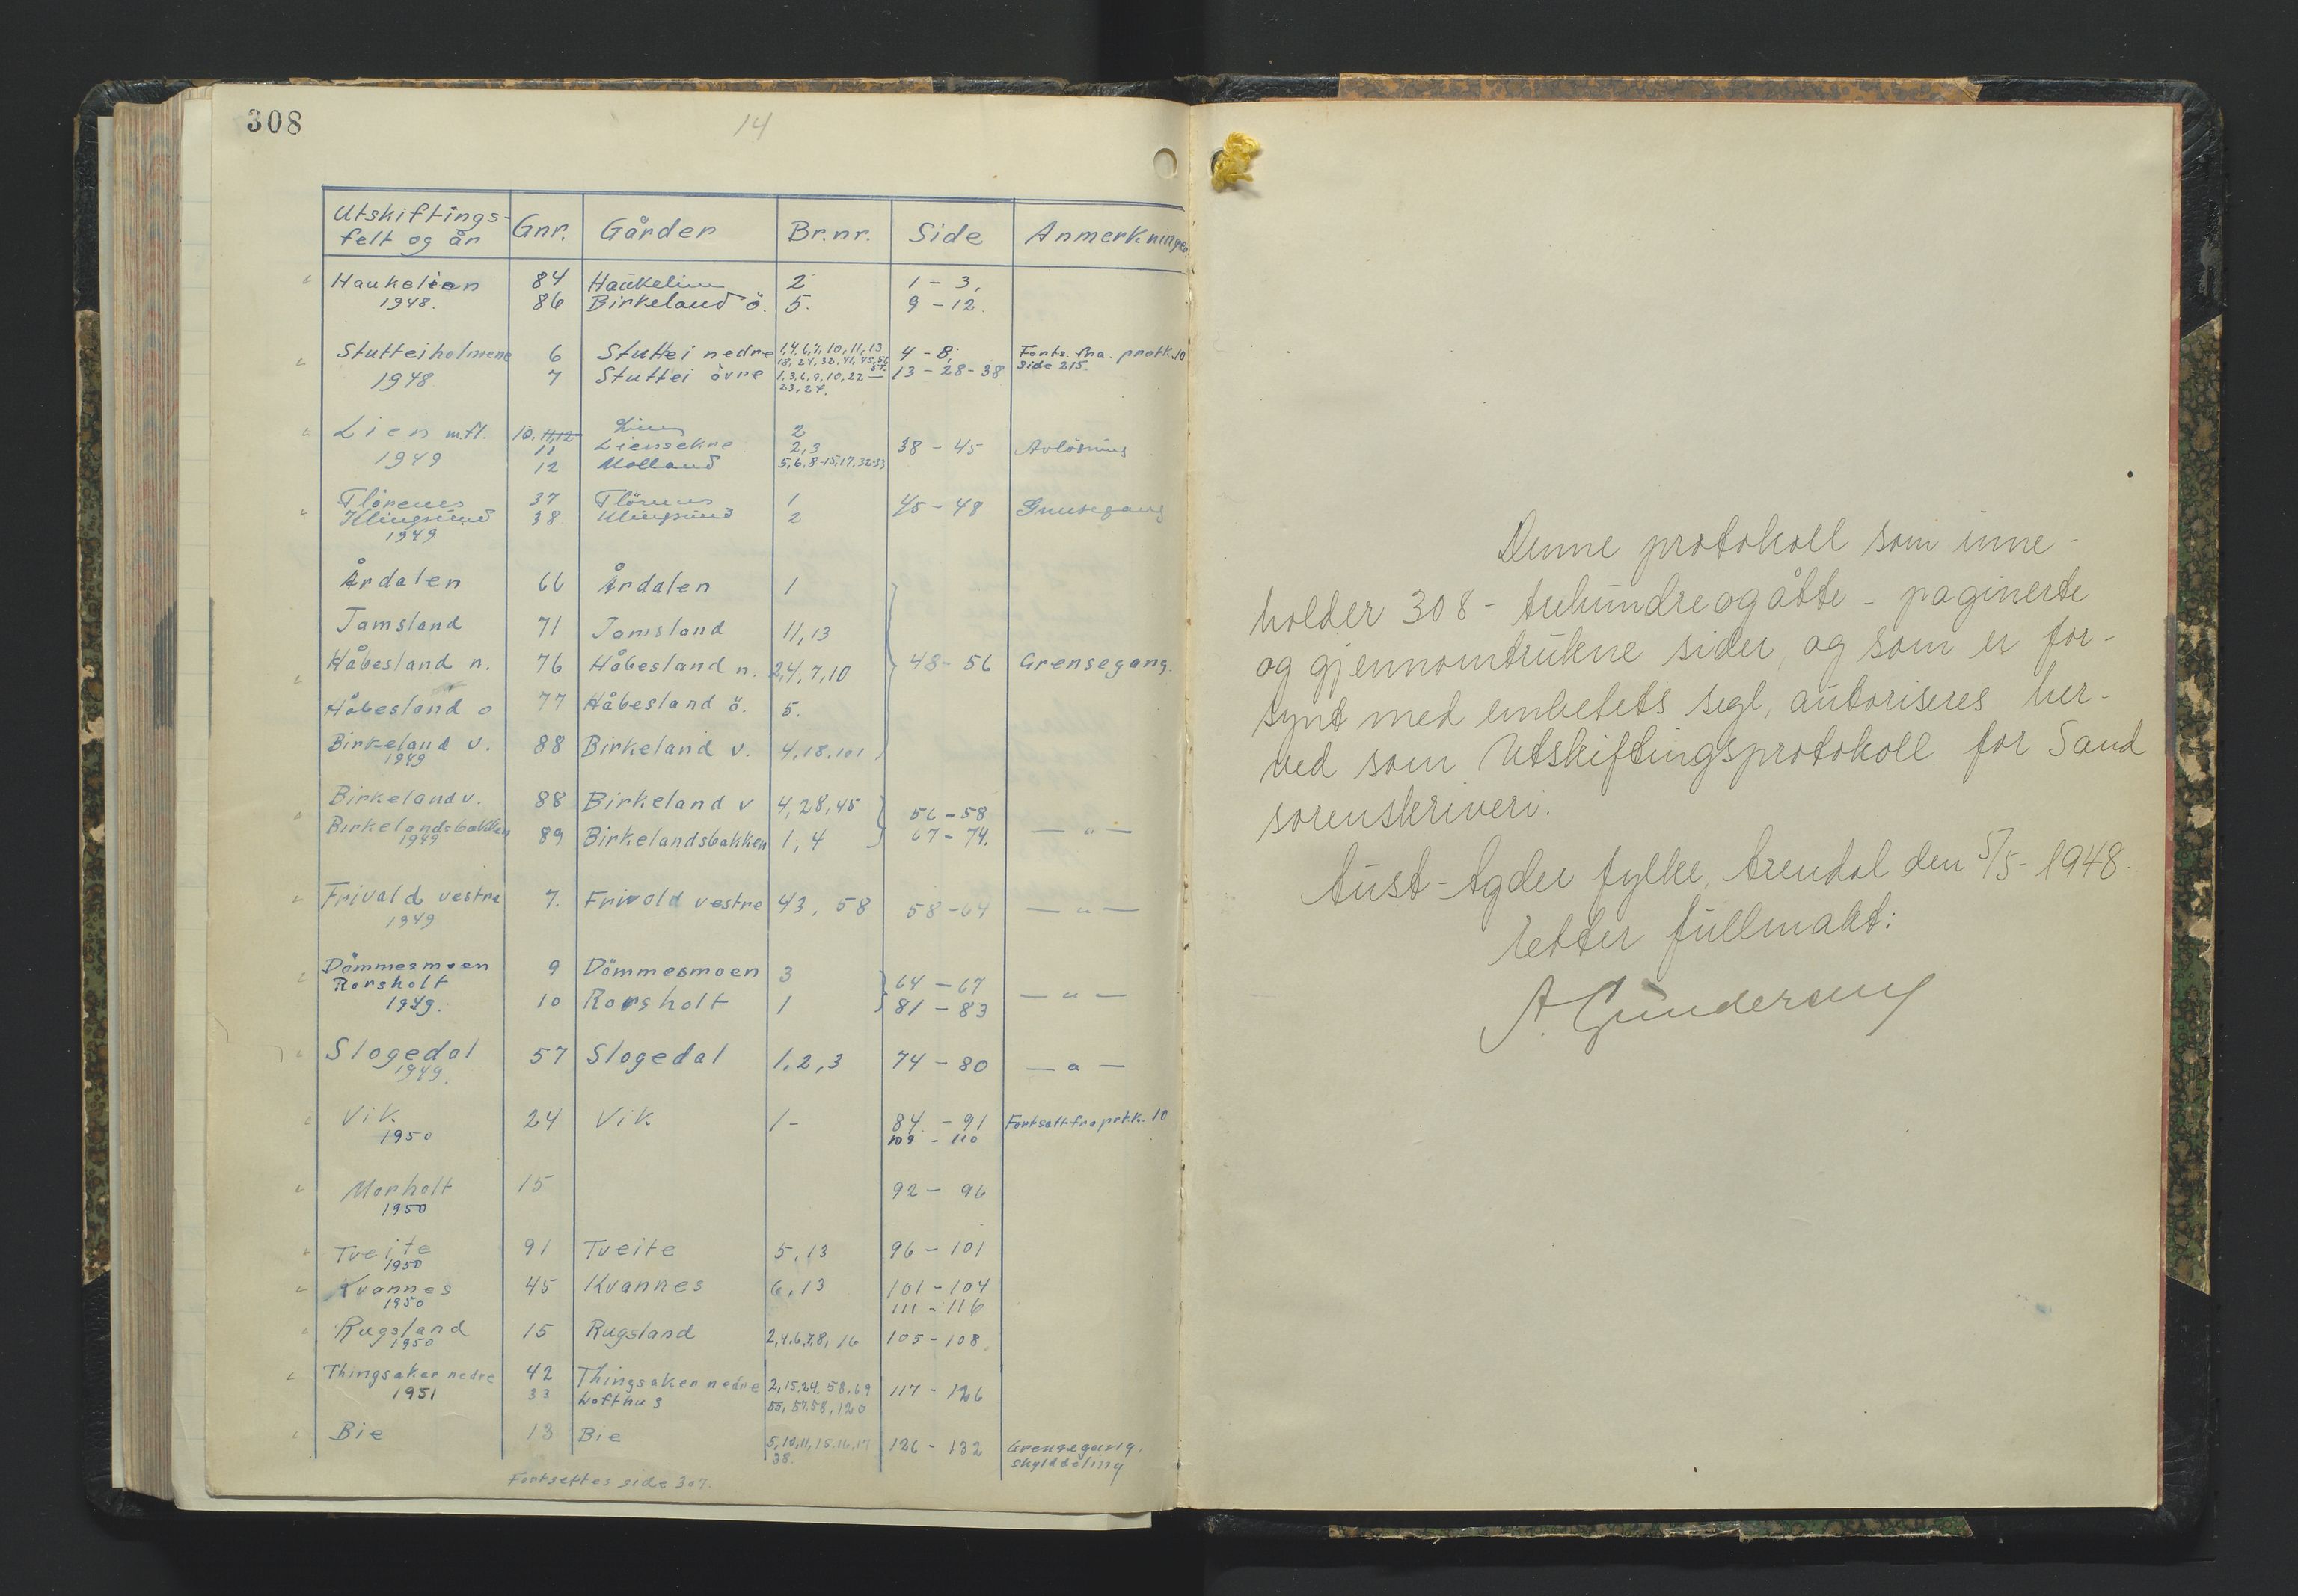 308
14
Utskiftings- felt og år Gnr. Gårder Br.nr. Side Anmerkninger
Haukelien 84 Haukelien 2 1 - 3,
1948. 86 Birkeland ö. 5. 9 - 12.
Stutteiholmene 6 Stuttei nedre 1,4,6,7,10,11,13 4 - 8, Forts. fra. protk. 10
18, 24, 32, 41, 45, 56 side 215.
1948 7 Stuttei övre 1,3,6,9,10,22 — 13 - 28 - 38
23,24.
Lien m.fl. 10. 11,12 Lien 2
11 Liensekre 2,3 38 - 45 Avlösning
1949 12 Molland 5,6,8-15,17,32-33
Flörenes 37 Flörenes 1 45 - 48 Grensegang
Klingsund 38 Klingsund 2
1949
Årdalen 66 Årdalen 1
Jamsland 71 Jamsland 11,13
Håbesland n. 76 Håbesland n. 2,4,7,10 48 - 56 Grensegang.
Håbesland o 77 Håbesland ö. 5.
Birkeland v. 88 Birkeland v. 4,18,101
1949
Birkeland v. 88 Birkeland v 4,28,45 56 - 58
Birkelandsbakken 89 Birkelandsbakken 1, 4 67 - 74. — " —
1949
Frivold vestre 7. Frivold vestre 43, 58 58 - 64 — " —
1949
Dömmesmoen 9 Dömmesmoen 3 64 - 67
Rorsholt 10 Rorsholt 1 81 - 83 — " —
1949.
Slogedal 57 Slogedal 1,2,3 74 - 80 — " —
1949.
Vik 24 Vik 1 - 84 - 91 Fortsatt fra protk. 10
1950 109 - 110
Morholt 15 92 - 96
1950
Tveite 91 Tveite 5, 13 96 - 101
1950
Kvannes 45 Kvannes 6, 13 101 - 104
1950 111 - 116
Rugsland 15 Rugsland 2,4,6,7,8, 16 105 - 108
1950
Thingsaker nedre 42 Thingsaker nedre 2,15,24, 58, 69 117 - 126
1951 33 Lofthus 55, 57,58, 120
Bie 13 Bie 5,10,11,15,16,17 126 - 132 Grensegang.
38. skylddeling
Fortsettes side 307.
Denne protokoll som inne-
holder 308 - trehundreogåtte - paginerte
og gjennomtrukne sider, og som er for-
synt med embetets segl, autoriseres her-
ved som Utskiftingsprotokoll for Sand
sorenskriveri.
Aust-Agder fylke, Arendal den 5/5 - 1948.
Etter fullmakt:
A. Gundersen